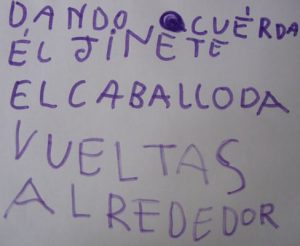 DANDO CUÉRDA
ÉL JINETE
EL CABALLO DA
VUELTAS
ALREDEDOR